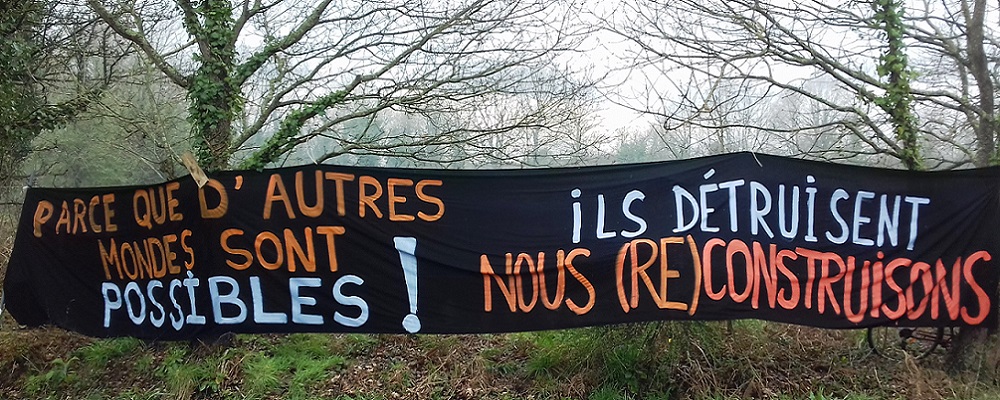 PARCE QUE D'AUTRES
MONDES SONT
POSSIBLES !
iLS DÉTRUISENT
NOUS (RE)CONSTRUISONS